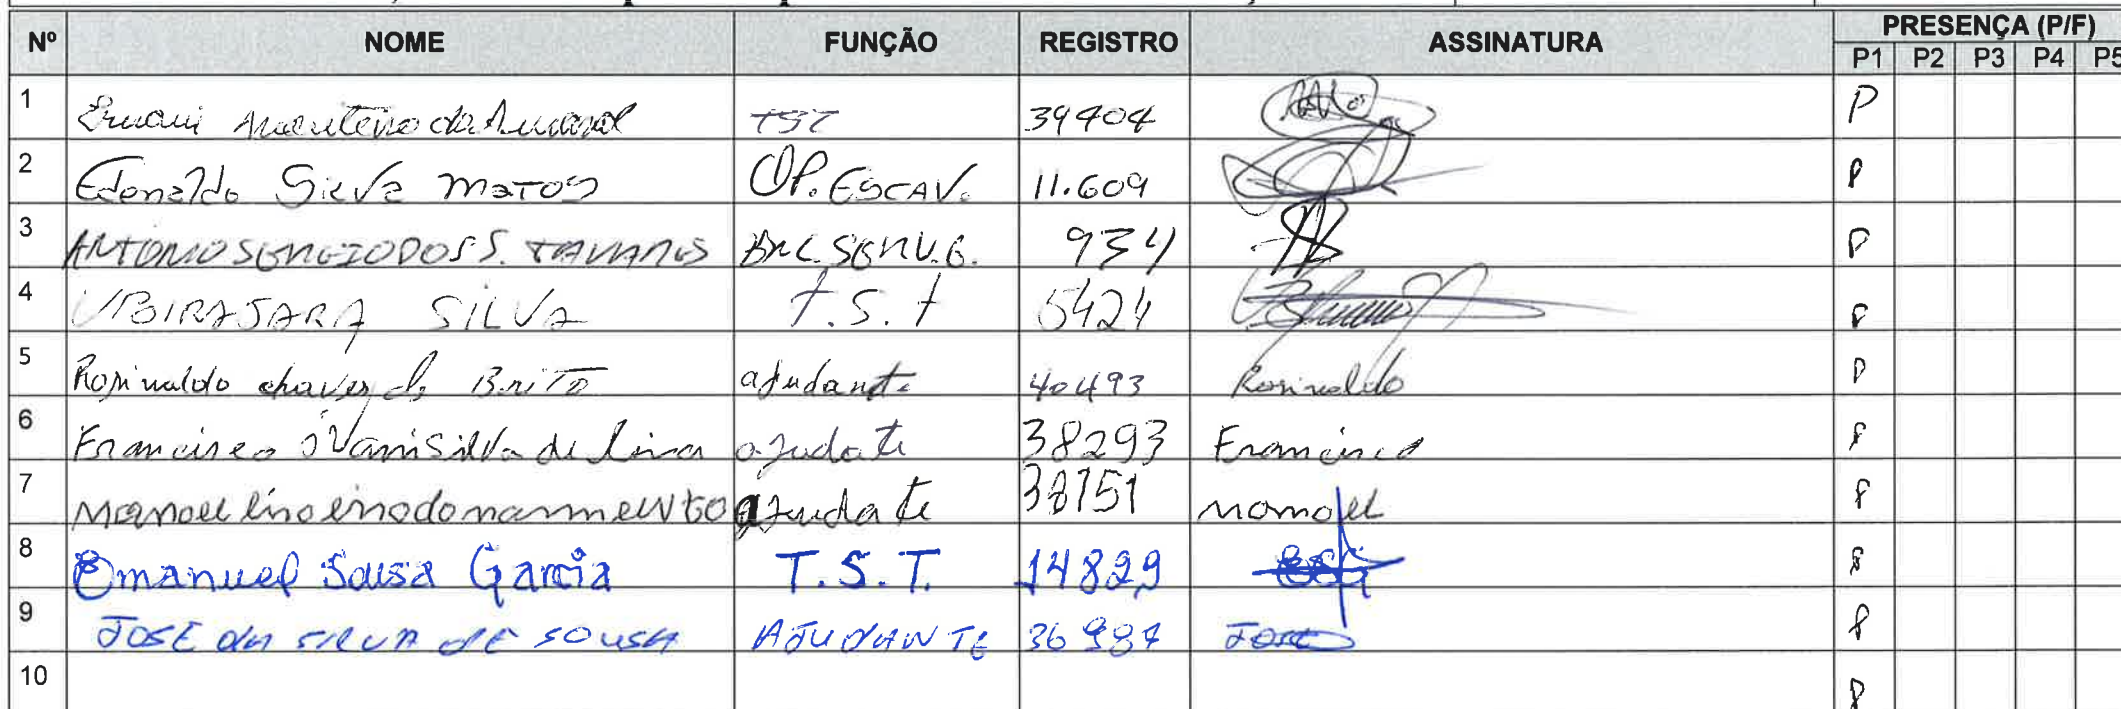 Nº NOME FUNÇÃO REGISTRO ASSINATURA PRESENÇA (P/F)
P1 P2 P3 P4 P5
1 TST 39404 P
2 Edonaldo Silva Matos OP. ESCAV. 11.609 P
3 ANTONIO SERGIO DOS S. TAVARES ENC. SERV. G. 934 P
4 UBIRAJARA SILVA T.S.T 5424 P
5 Rosinaldo chaves de Brito ajudante 40493 Rosinaldo P
6 Francisco Silva de Lima ajudate 38293 Francisco P
7 Manoel ajudate 38751 Manoel P
8 Emanuel Sousa Garcia T.S.T. 14829 ESG P
9 JOSE da SILVA DE SOUSA AJUDANTE 36987 José P
10 P